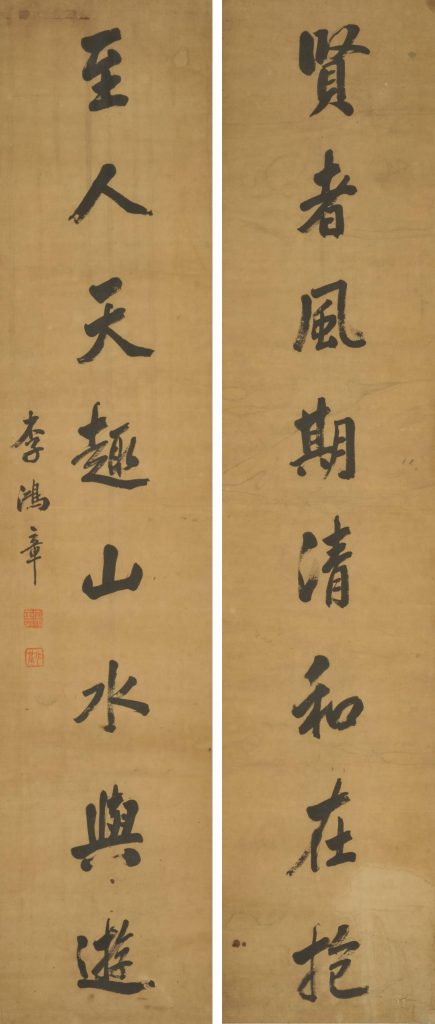 賢者風期清和在抱
至人天趣山水與遊
李鴻章